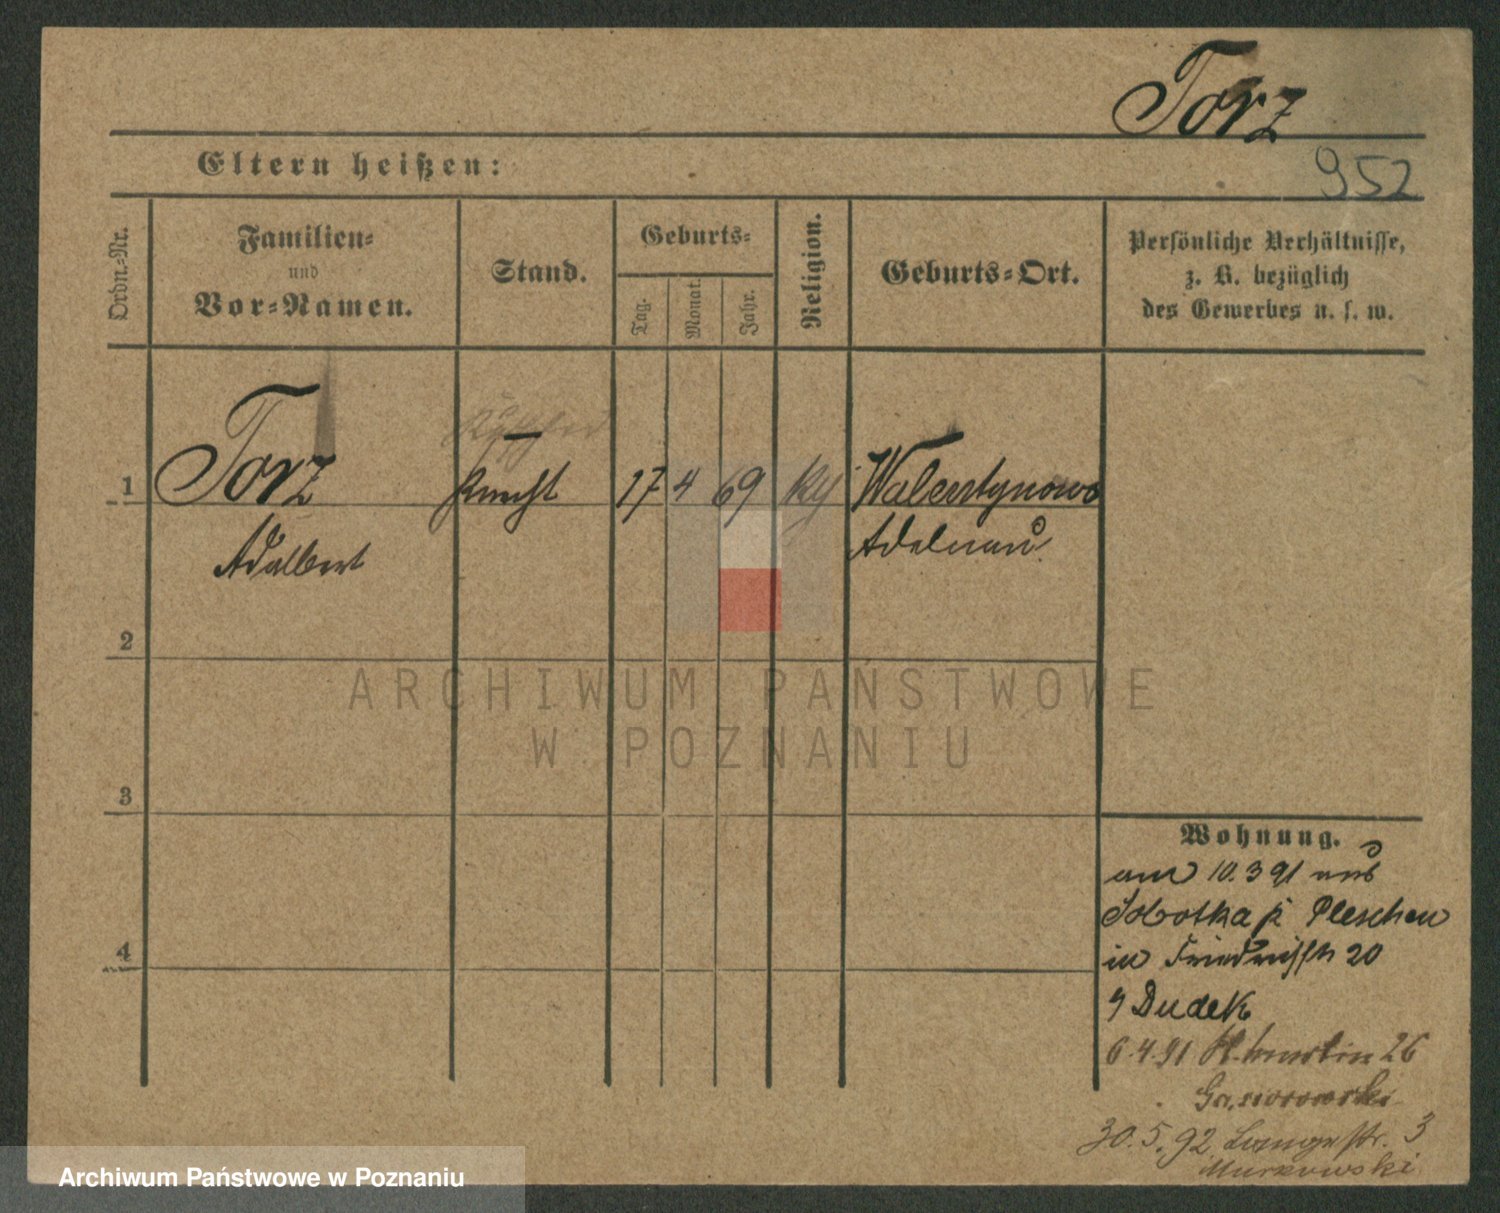 Torz
Eltern heißen:
952
Ordn.-Nr.
Familien-
und
Vor-Namen.
Stand.
Geburts-
Tag.
Monat.
Jahr.
Religion.
Geburts-Ort.
Persönliche Verhältnisse,
z. B. bezüglich
des Gewerbes u. s. w.
1 Torz Knecht 17 4 69 Walentynowo
Adalbert Adelnau
2
3
4
Wohnung.
am 10.3 91 aus
Sobotka Pleschen
in Friedrichstr 20
Dudek
6.4.91 St. Martin 26
Gasiorowski
30.5.92 Lange str. 3
Murkowski
ARCHIWUM PAŃSTWOWE
W POZNANIU
Archiwum Państwowe w Poznaniu